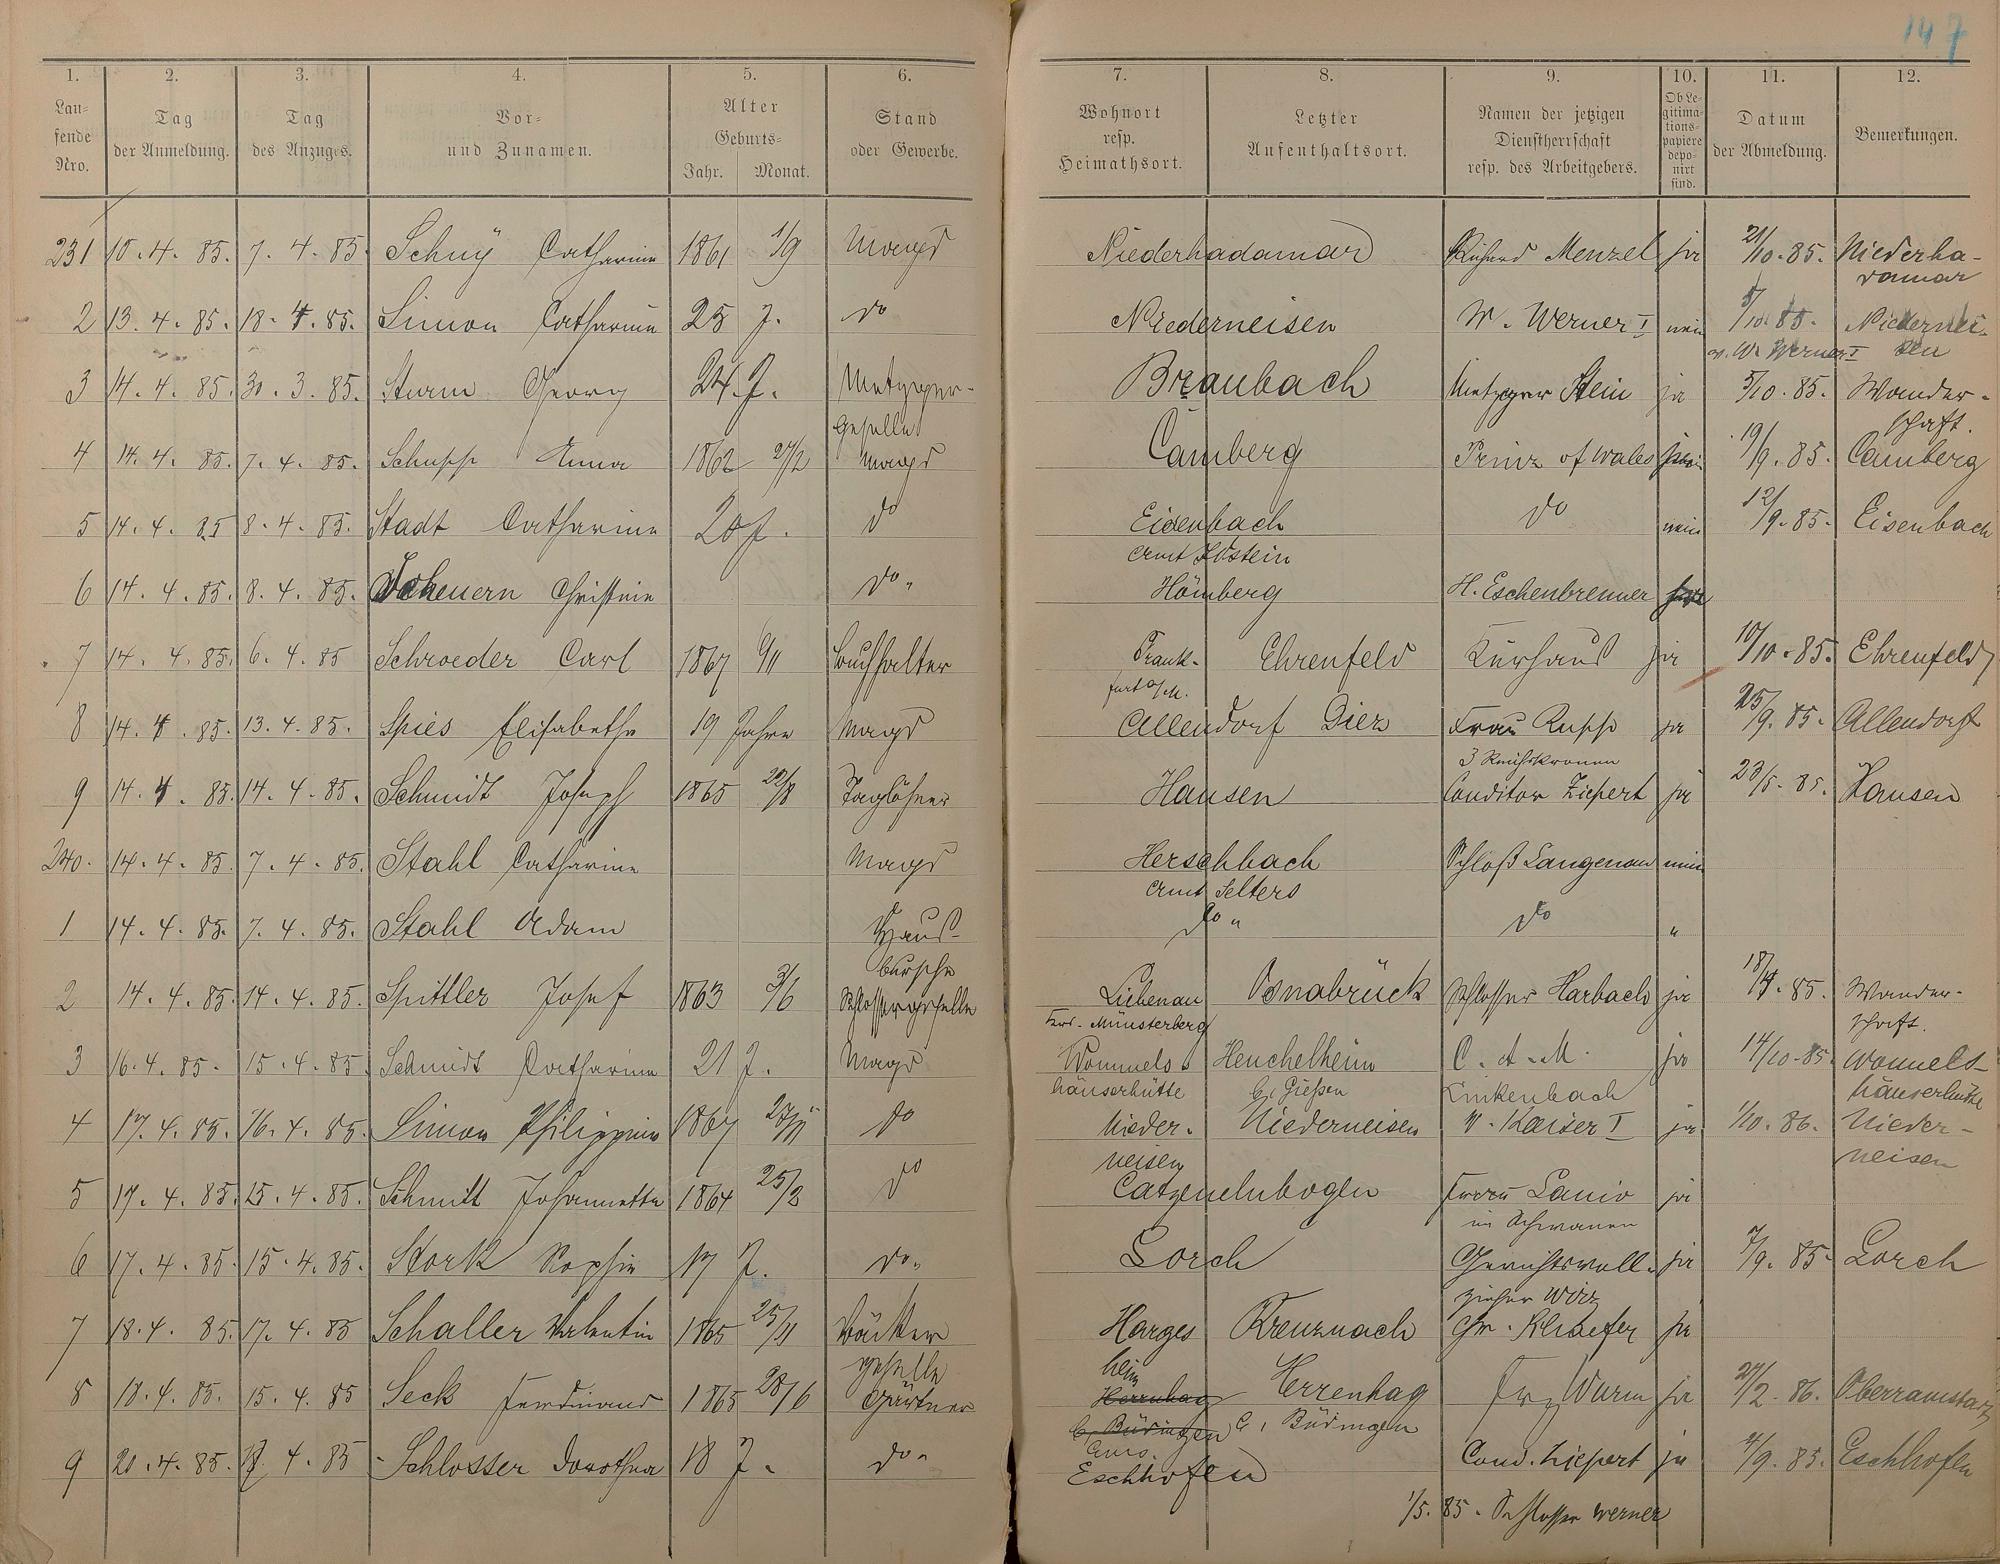 147
1. 2. 3. 4. 5. 6. 7. 8. 9. 10. 11. 12.
Lau-
fende
Nro.
Tag
der Anmeldung.
Tag
des Anzuges.
Vor-
und Zunamen.
Alter
Geburts-
Jahr. Monat.
Stand
oder Gewerbe.
Wohnort
resp.
Heimathsort.
Letzter
Aufenthaltsort.
Namen der jetzigen
Dienstherrschaft
resp. des Arbeitgebers.
Ob Le-
gitima-
tions-
papiere
depo-
nirt
sind.
Datum
der Abmeldung.
Bemerkungen.
231 10. 4. 85. 7. 4. 85. Schuy Catharine 1861 1/9 Magd Niederhadamar Menzel ja 21/10. 85. Niederha-
damar
2 13. 4. 85. 18. 4. 85. Simon Catharine 25 J. do Niederneisen W. Werner I nein 5/10. 85. Niedernei-
W. Werner I sen
3 14. 4. 85. 30. 3. 85. Sturm Georg 24. J. Metzger- Braubach Metzger Stein ja 5/10. 85. Wander-
geselle schaft.
4 14. 4. 85. 7. 4. 85. Schupp Anna 1862 27/2 Magd Camberg Prinz of Wales 19/9. 85. Camberg
5 14. 4. 85 8. 4. 85. Stadt Catharine 20 J. do Eisenbach do nein 12/9. 85. Eisenbach
Amt Idstein
6 14. 4. 85. 8. 4. 85. Scheuern Christine do. Hömberg H. Eschenbrenner
7 14. 4. 85. 6. 4. 85 Schroeder Carl 1867 6/11 Buchhalter Frank- Ehrenfeld Kurhaus ja 10/10. 85. Ehrenfeld
furt a/M.
8 14. 4. 85. 13. 4. 85. Spies Elisabethe 19 Jahre Magd Allendorf Diez Frau Rupp ja 25/9. 85. Allendorf
3 Reichskronen
9 14. 4. 85. 14. 4. 85. Schmidt Joseph 1865 22/8 Taglöhner Hausen Conditor Ziepert ja 23/5. 85. Hausen
240. 14. 4. 85. 7. 4. 85. Stahl Catharine Magd Herschbach Schloß Langenau nein
Amt Selters
1 14. 4. 85. 7. 4. 85. Stahl Adam Haus- do " do "
bursche
2 14. 4. 85. 14. 4. 85. Spittler Josef 1863 3/6 Schlossergeselle Liebenau Osnabrück Schlosser Harbach ja 85. Wander-
Münsterberg schaft.
3 16. 4. 85. 15. 4. 85. Schmidt Catharine 21 J. Magd Wommels Heuchelheim C. A. M. ja 14/10. 85. Wommels-
häuserhütte b/ Gießen Linkenbach häuserhütte
4 17. 4. 85. 16. 4. 85. Simon Philippine 1867 27/11 do Nieder- Niederneisen W. Kaiser I ja 1/10. 86. Nieder-
neisen neisen
5 17. 4. 85. 15. 4. 85. Schmitt Johannette 1864 25/2 do Catzenelnbogen Frau Lanio ja
im Schwanen
6 17. 4. 85. 15. 4. 85. Stork Sophie 17 J. do. Lorch Gerichtsvoll- ja 7/9. 85. Lorch
zieher Wirz
7 18. 4. 85. 17. 4. 85 Schaller Valentin 1865 25/11 Bäcker Harges Kreuznach Gw. Schaefer ja
geselle heim
8 18. 4. 85. 15. 4. 85 Seck Ferdinand 1865 28/6 Gärtner Herrnhag Herrenhag Frz Wurm ja 27/2. 86. Oberramstadt
b, Büdingen b, Büdingen
9 20. 4. 85. 17. 4. 85 Schlosser Dorothea 18 J. do. Eschhofen Cond. Ziepert ja 4/9. 85. Eschhofen
1/5. 85. Schlosser Werner